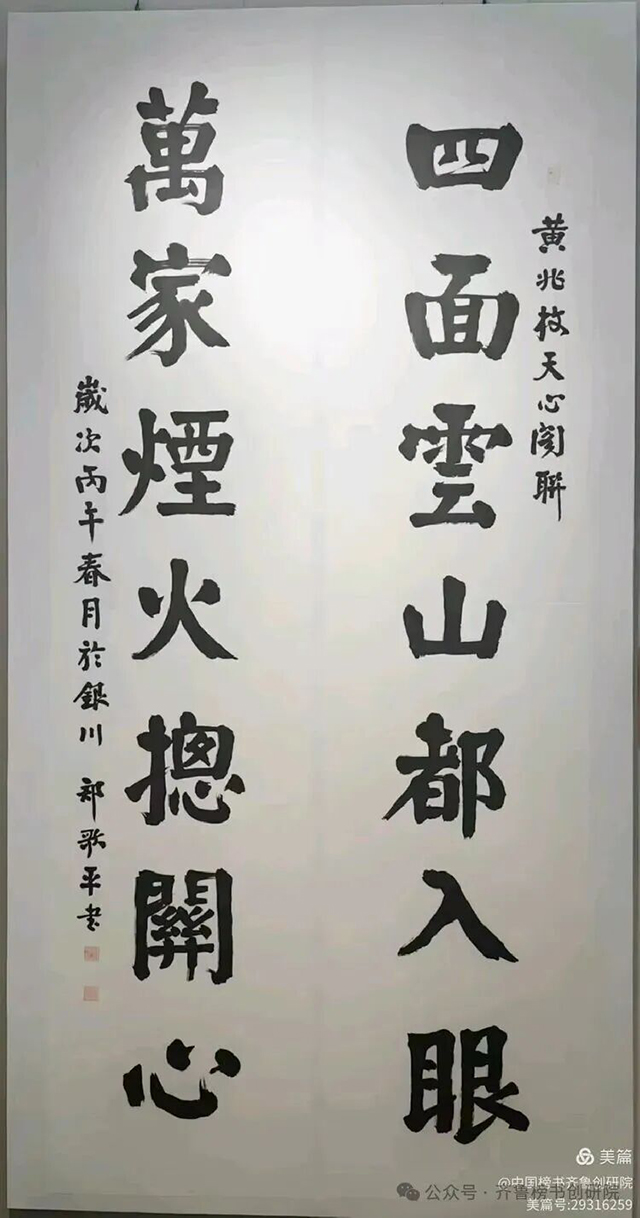 黄兆枚天心阁聯
四面雲山都入眼
萬家煙火摠關心
歲次丙午春月於銀川 郑歌平書
美篇
@中国榜书齐鲁创研院
公众号·齐鲁榜书创研院
美篇号:29316259